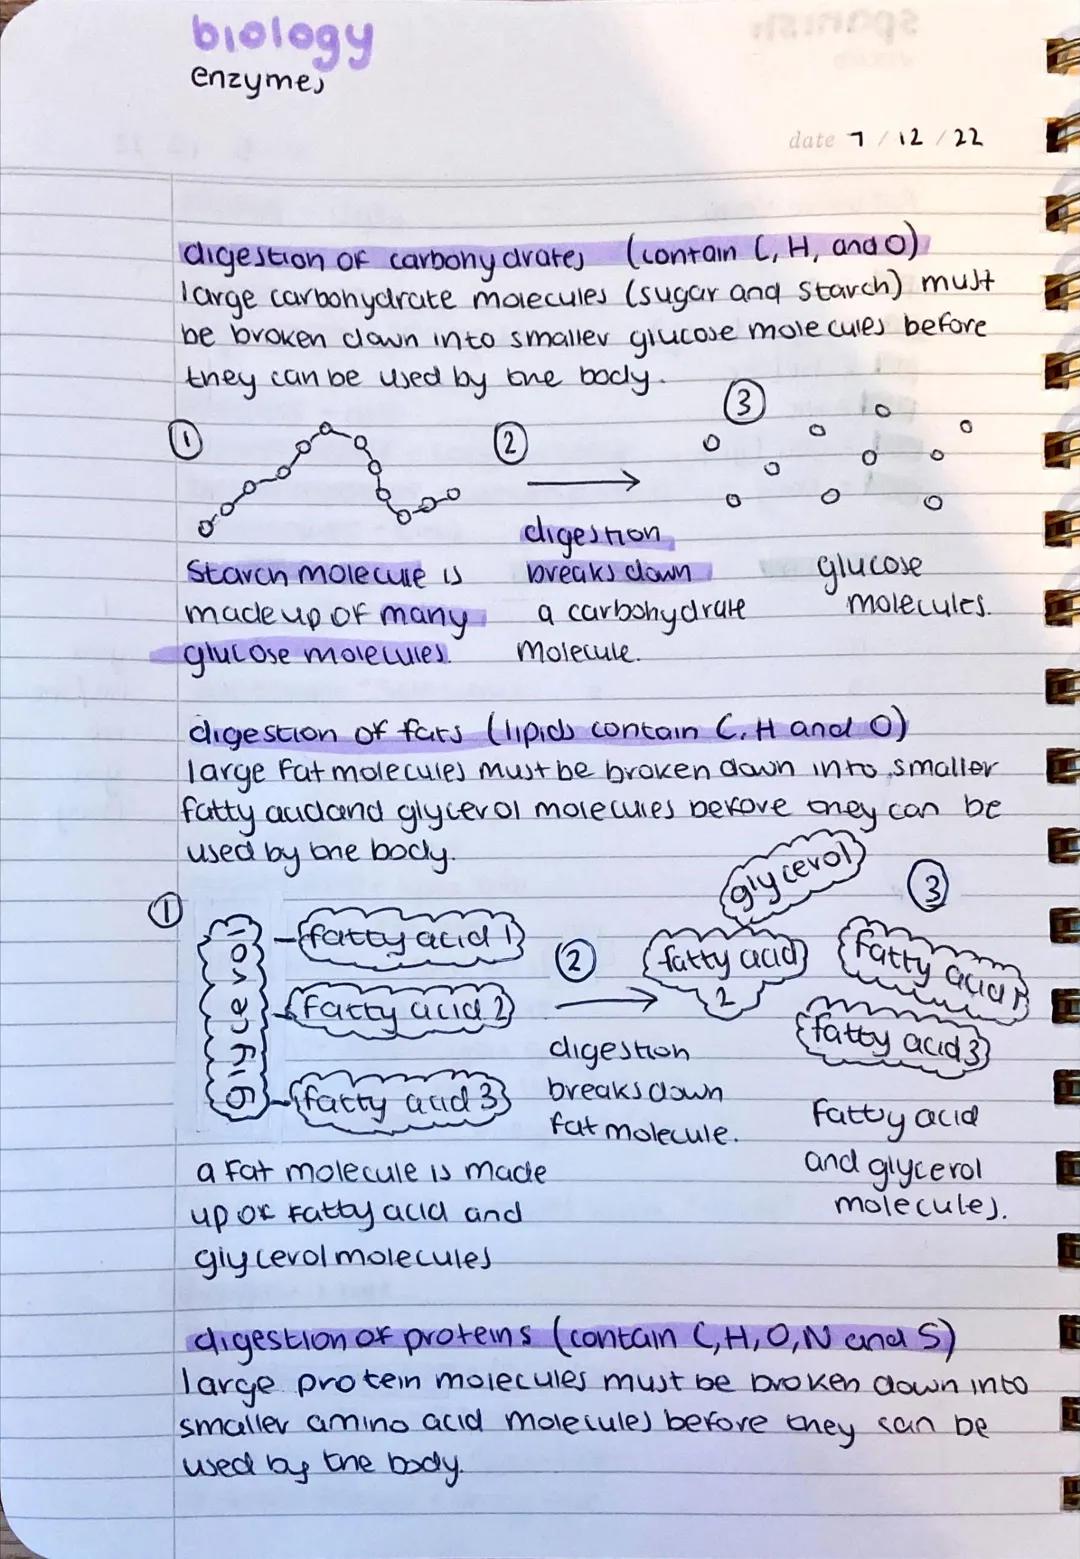 biology
enzymes
date 7 / 12 / 22
digestion of carbohydrates (contain C, H, and O)
large carbohydrate molecules (sugar and starch) must
be broken down into smaller glucose molecules before
they can be used by the body.
① ② ③
digestion
starch molecule is breaks down glucose
made up of many a carbohydrate molecules.
glucose molecules. molecule.
digestion of fats (lipids contain C, H and O)
large fat molecules must be broken down into smaller
fatty acid and glycerol molecules before they can be
used by the body.
① ② ③
glycerol
fatty acid 1
fatty acid 2
fatty acid 3
glycerol
fatty acid
2
fatty acid 1
fatty acid 3
digestion
breaks down
fat molecule.
fatty acid
and glycerol
molecules.
a fat molecule is made
up of fatty acid and
glycerol molecules
digestion of proteins (contain C, H, O, N and S)
large protein molecules must be broken down into
smaller amino acid molecules before they can be
used by the body.